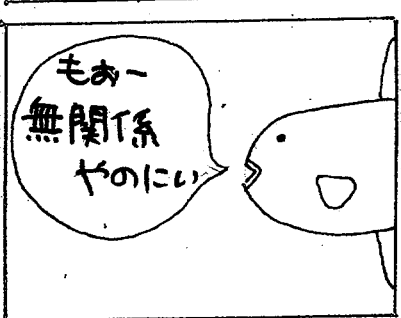 もぉー
無関係
やのにい